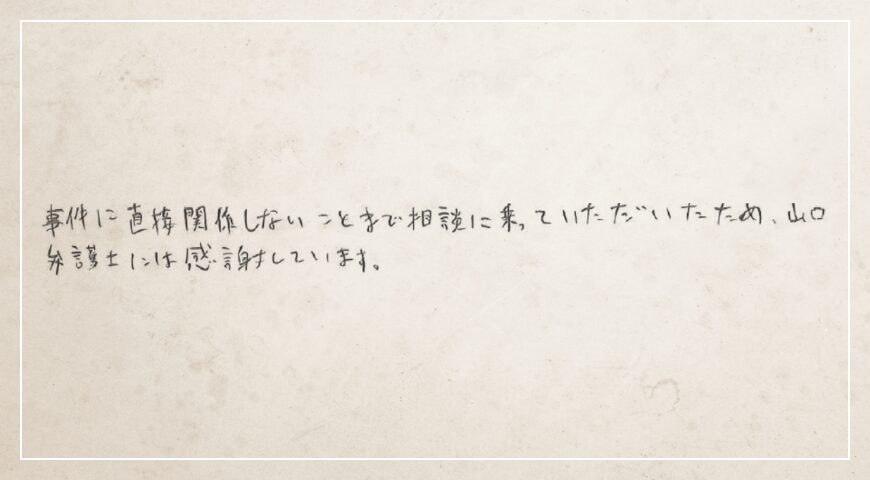 事件に直接関係しないことまで相談に乗っていただいたため、山口
弁護士には感謝しています。